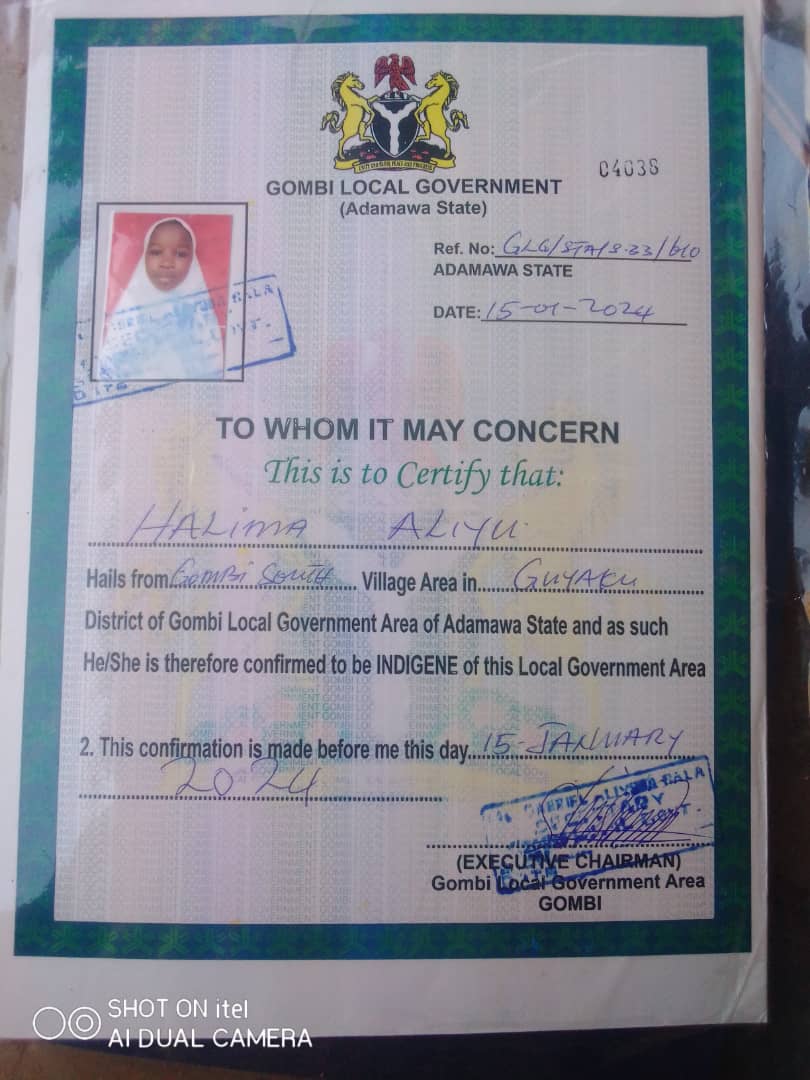 04038
GOMBI LOCAL GOVERNMENT
(Adamawa State)
Ref. No: GLG/STA/S.33/610
ADAMAWA STATE
DATE: 15-01-2024
TO WHOM IT MAY CONCERN
This is to Certify that:
HALIMA ALIYU
Hails from GOMBI SOUTH Village Area in GUYAKU
District of Gombi Local Government Area of Adamawa State and as such
He/She is therefore confirmed to be INDIGENE of this Local Government Area
2. This confirmation is made before me this day 15-JANUARY
2024
(EXECUTIVE CHAIRMAN)
Gombi Local Government Area
GOMBI
SHOT ON itel
AI DUAL CAMERA